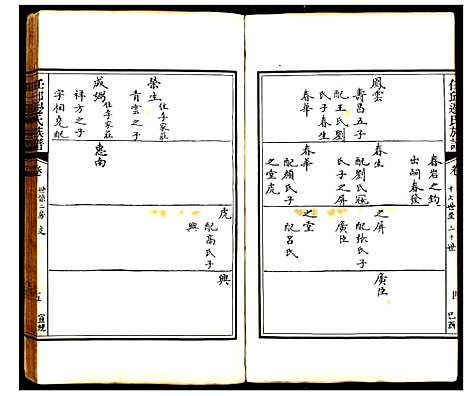 任邱邊氏族譜
卷
十六世至二十世
四
己酉
春岩之鈞
出嗣春發
鳳雲
壽昌五子
配王氏劉
氏子春生
春華
春生
配劉氏寇
氏子之屏
春華
配顏氏子
之堂虎
之屏
配張氏子
廣臣
之堂
配呂氏
廣臣
虎
配高氏子
興
興
榮生
仕李家莊
青雲之子
成弼
仕李家莊
祥方之子
字相堯配
惠南
任邱邊氏族譜
卷
世錄二房支
五
宣統